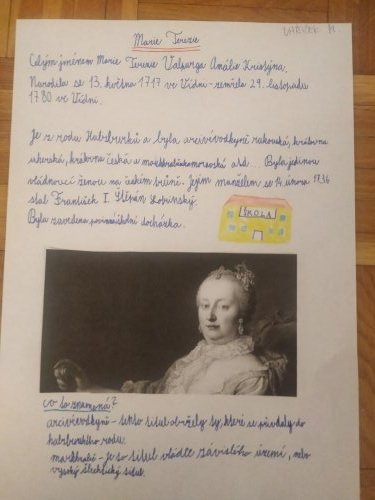 Marie Terezie
Celým jménem Marie Terezie Valpurga Amálie Kristýna.
Narodila se 13. května 1717 ve Vídni - zemřela 29. listopadu
1780 ve Vídni.
Je z rodu Habsburků a byla arcivévodkyně rakouská, královna
uherská, královna česká a markraběnka moravská atd. Byla jedinou
vládnoucí ženou na českém trůně. Jejím manželem se 12. února 1736
stal František I. Štěpán Lotrinský.
Byla zavedena povinná školní docházka.
ŠKOLA
co to znamená?
arcivévodkyně - tento titul obdržely ty, které se přivdaly do
habsburského rodu.
markrabě - je to titul vládce závislého území, nebo
vysoký šlechtický titul.